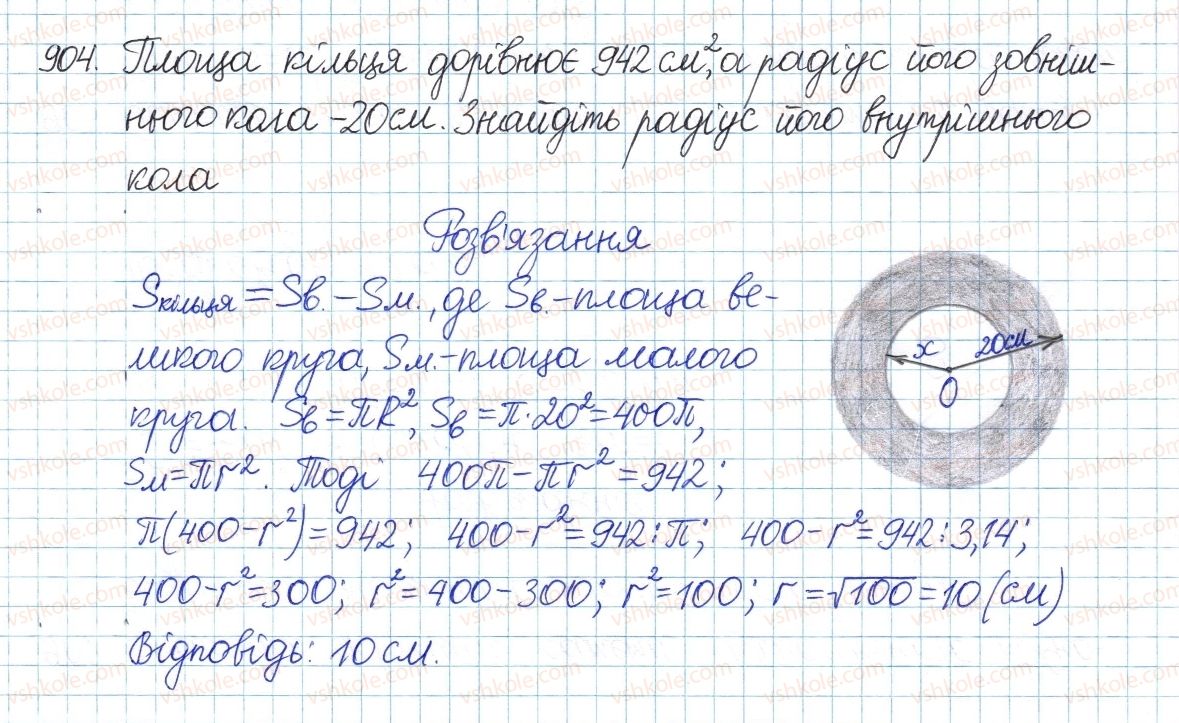 904. Площа кільця дорівнює 942 см², а радіус його зовніш-
нього кола – 20 см. Знайдіть радіус його внутрішнього
кола
Розв'язання
Sкільця = Sв. – Sм., де Sв. – площа ве-
ликого круга, Sм. – площа малого
круга. Sв = πR², Sв = π·20² = 400π,
Sм = πr². Тоді 400π – πr² = 942;
π(400 – r²) = 942; 400 – r² = 942 : π; 400 – r² = 942 : 3,14;
400 – r² = 300; r² = 400 – 300; r² = 100; r = √100 = 10 (см)
Відповідь: 10 см.
x 20см
O
vshkole.com